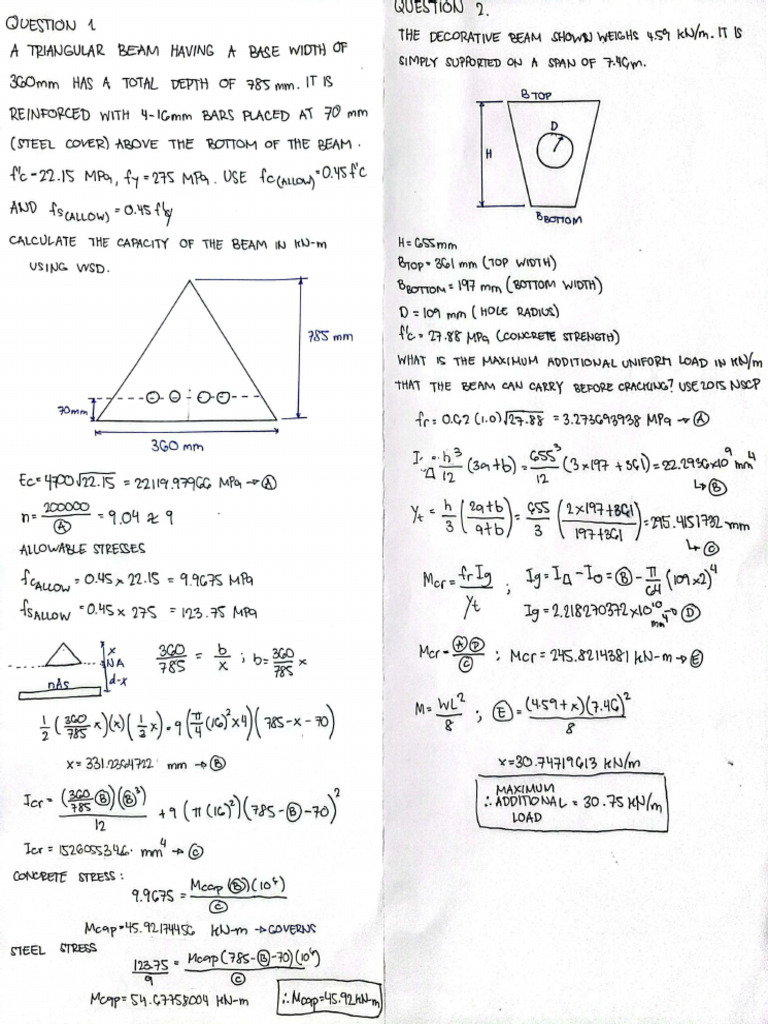 QUESTION 1
A TRIANGULAR BEAM HAVING A BASE WIDTH OF
360mm HAS A TOTAL DEPTH OF 785 mm. IT IS
REINFORCED WITH 4-16mm BARS PLACED AT 70 mm
(STEEL COVER) ABOVE THE BOTTOM OF THE BEAM.
f'c = 22.15 MPa, fy = 275 MPa. USE fc(ALLOW) = 0.45f'c
AND fs(ALLOW) = 0.45 fy
CALCULATE THE CAPACITY OF THE BEAM IN kN-m
USING WSD.
785 mm
70mm
360 mm
Ec = 4700√22.15 = 22119.97966 MPa → Ⓐ
n = 200000/Ⓐ = 9.04 ≈ 9
ALLOWABLE STRESSES
fcALLOW = 0.45 × 22.15 = 9.9675 MPa
fsALLOW = 0.45 × 275 = 123.75 MPa
x
NA
d-x
nAs
360/785 = b/x ; b = 360/785 x
1/2 (360/785 x)(x)(1/3 x) = 9 (π/4 (16)² × 4)(785 - x - 70)
x = 331.2364722 mm → Ⓑ
Icr = (360/785 Ⓑ)(Ⓑ³)/12 + 9 (π(16)²)(785 - Ⓑ - 70)²
Icr = 1526055346. mm⁴ → Ⓒ
CONCRETE STRESS:
9.9675 = Mcap (Ⓑ)(10⁶)/Ⓒ
Mcap = 45.92174456 kN-m → GOVERNS
STEEL STRESS
123.75/9 = Mcap (785-Ⓑ-70)(10⁶)/Ⓒ
Mcap = 54.67758004 kN-m
∴ Mcap = 45.92 kN-m
QUESTION 2.
THE DECORATIVE BEAM SHOWN WEIGHS 4.59 kN/m. IT IS
SIMPLY SUPPORTED ON A SPAN OF 7.46m.
B TOP
D
H
BBOTTOM
H = 655mm
BTOP = 361 mm (TOP WIDTH)
BBOTTOM = 197 mm (BOTTOM WIDTH)
D = 109 mm (HOLE RADIUS)
f'c = 27.88 MPa (CONCRETE STRENGTH)
WHAT IS THE MAXIMUM ADDITIONAL UNIFORM LOAD IN KN/m
THAT THE BEAM CAN CARRY BEFORE CRACKING? USE 2015 NSCP
fr = 0.62 (1.0)√27.88 = 3.273693938 MPa → Ⓐ
I△ = h³/12 (3a+b) = 655³/12 (3 × 197 + 361) = 22.2936×10⁹ mm⁴
↳ Ⓑ
Yt = h/3 (2a+b/a+b) = 655/3 (2×197+361/197+361) = 295.4151732 mm
↳ Ⓒ
Mcr = frIg/Yt ; Ig = I△ - I○ = Ⓑ - π/64 (109×2)⁴
Ig = 2.218270372 × 10¹⁰ mm⁴ → Ⓓ
Mcr = ⒶⒹ/Ⓒ ; Mcr = 245.8214381 kN-m → Ⓔ
M = WL²/8 ; Ⓔ = (4.59+x)(7.46)²/8
x = 30.74719613 kN/m
∴ MAXIMUM ADDITIONAL LOAD = 30.75 kN/m